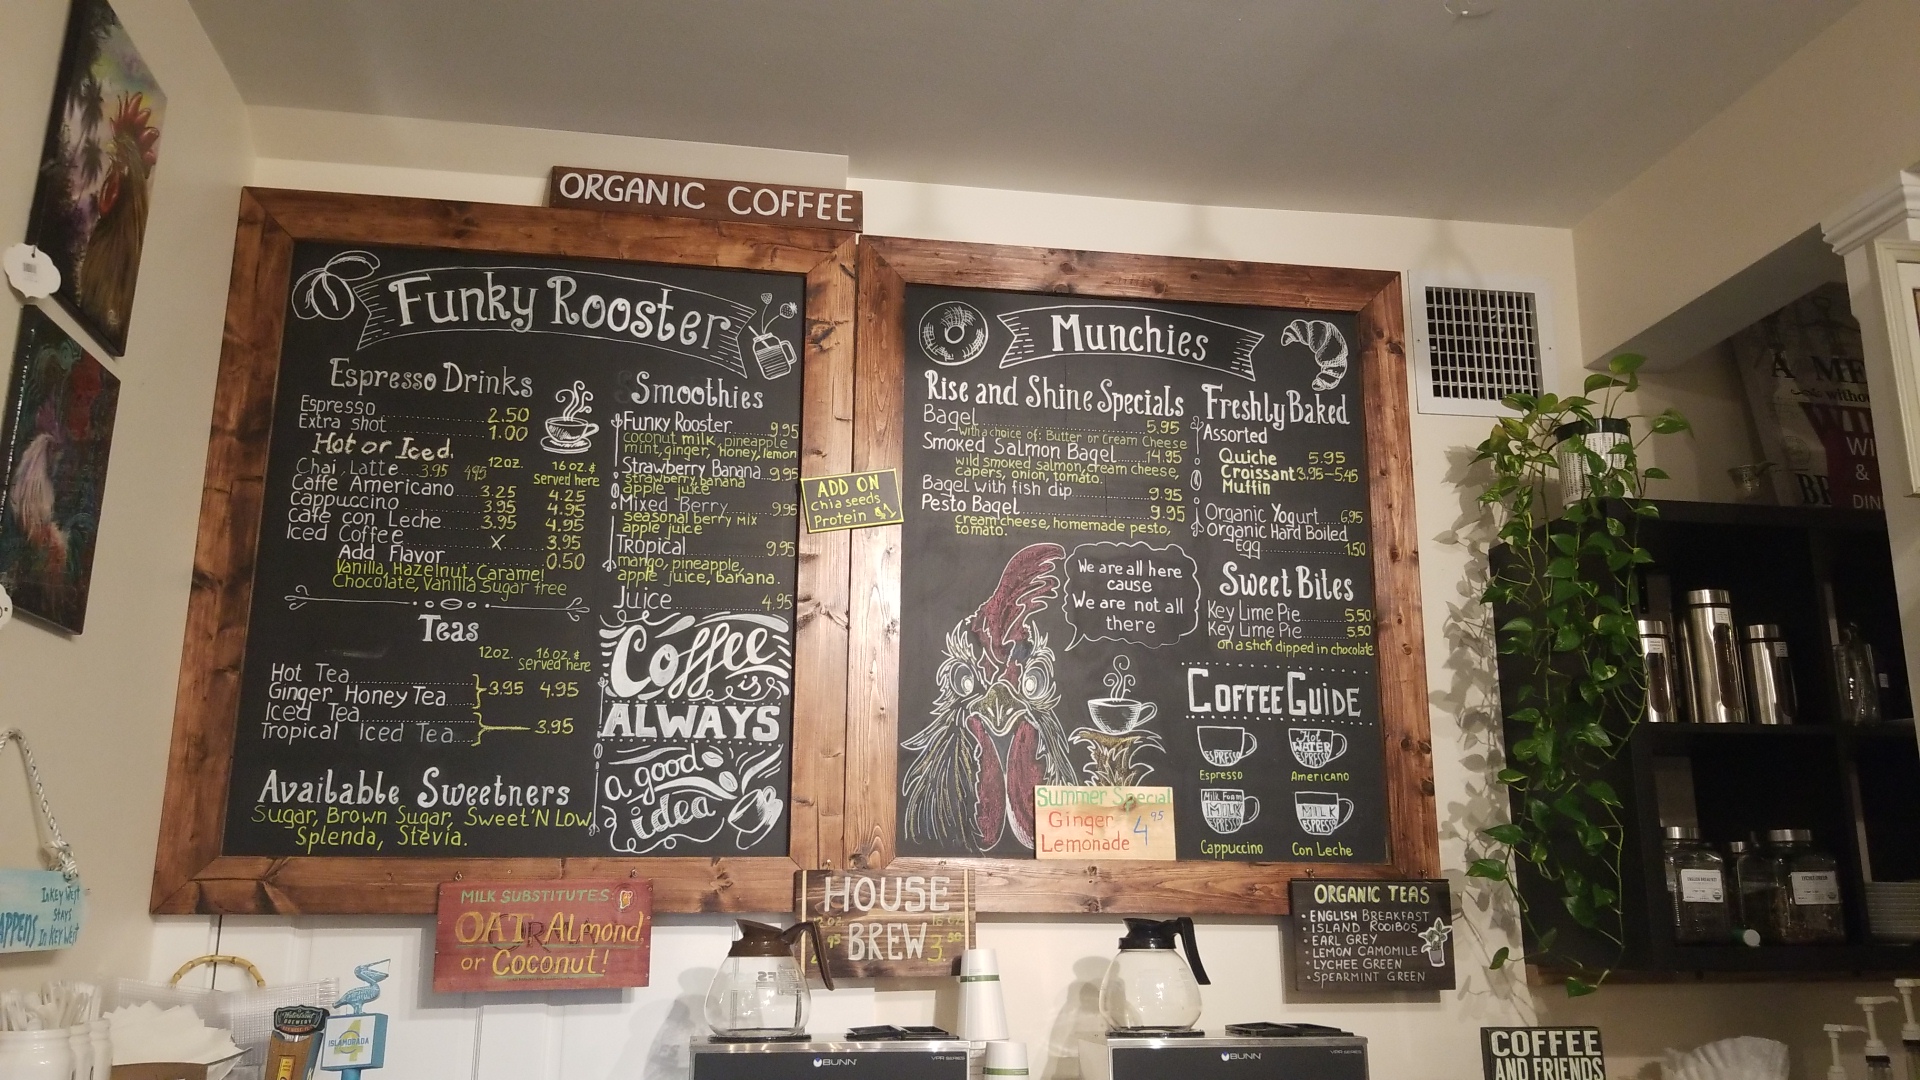 ORGANIC COFFEE
Funky Rooster
Espresso Drinks
Espresso 2.50
Extra shot 1.00
Hot or Iced.
12oz. 16 oz. &
served here
Chai Latte 3.95 4.95
Caffe Americano 3.25 4.25
Cappuccino 3.95 4.95
Cafe con Leche 3.95 4.95
Iced Coffee X 3.95
Add Flavor 0.50
Vanilla, Hazelnut, Caramel
Chocolate, Vanilla Sugar free
Teas
12oz. 16 oz. &
served here
Hot Tea
Ginger Honey Tea 3.95 4.95
Iced Tea
Tropical Iced Tea 3.95
Available Sweetners
Sugar, Brown Sugar, Sweet'N Low,
Splenda, Stevia.
Smoothies
Funky Rooster 9.95
coconut milk, pineapple
mint, ginger, honey, lemon
Strawberry Banana 9.95
strawberry, banana
apple juice
Mixed Berry 9.95
seasonal berry mix
apple juice
Tropical 9.95
mango, pineapple,
apple juice, banana.
Juice 4.95
Coffee
is
ALWAYS
a good
idea
ADD ON
Chia seeds,
Protein $1
Munchies
Rise and Shine Specials
Bagel 5.95
with a choice of: Butter or Cream Cheese
Smoked Salmon Bagel 14.95
wild smoked salmon, cream cheese,
capers, onion, tomato.
Bagel with fish dip 9.95
Pesto Bagel 9.95
cream cheese, homemade pesto,
tomato.
We are all here
cause
We are not all
there
Summer Special
Ginger
Lemonade 4.95
Freshly Baked
Assorted
Quiche 5.95
Croissant 3.95-5.45
Muffin
Organic Yogurt 6.95
Organic Hard Boiled
Egg 1.50
Sweet Bites
Key Lime Pie 5.50
Key Lime Pie 5.50
on a stick dipped in chocolate
COFFEE GUIDE
ESPRESSO
Espresso
Hot
WATER
ESPRESSO
Americano
Milk Foam
MILK
ESPRESSO
Cappuccino
MILK
ESPRESSO
Con Leche
MILK SUBSTITUTES:
OAT Almond
or Coconut!
HOUSE
BREW
12 oz 16 oz
ORGANIC TEAS
• ENGLISH BREAKFAST
• ISLAND ROOIBOS
• EARL GREY
• LEMON CAMOMILE
• LYCHEE GREEN
• SPEARMINT GREEN
COFFEE
AND FRIENDS
BUNN
VPR SERIES
BUNN
VPR SERIES
In KEY WEST
STAYS
In KEY WEST
ISLAMORADA